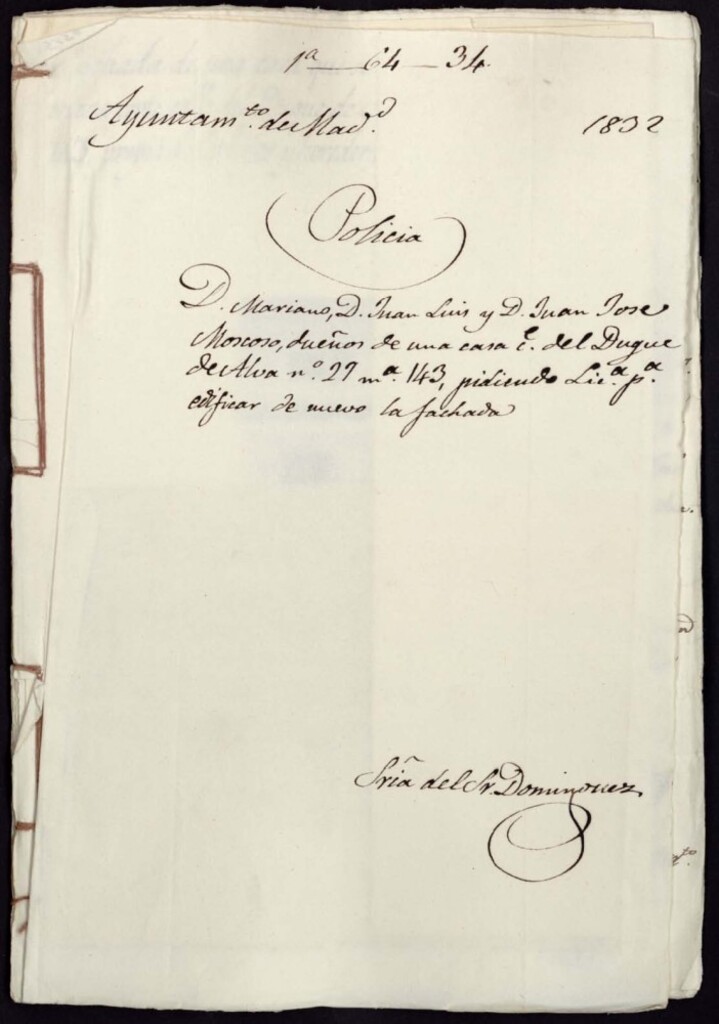 1ª 64 - 34
Ayuntam.to de Mad.d 1832
Policia
D. Mariano, D. Juan Luis y D. Juan Jose
Moscoso, dueños de una casa c.e del Duque
de Alva nº. 27 m.a 143, pidiendo Lic.a p.a
edificar de nuevo la fachada
Sria del Sr. Dominguez